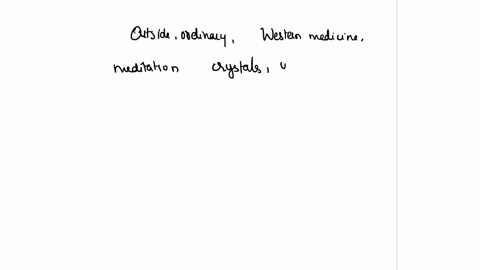 Outside, ordinary, Western medicine.
meditation crystals,